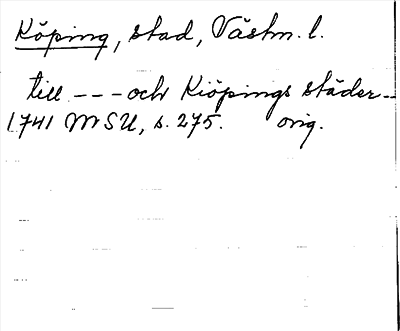 Köping, stad, Västm. l.
till --- och Kiöpings städer --
1741 MSU, s. 275. orig.